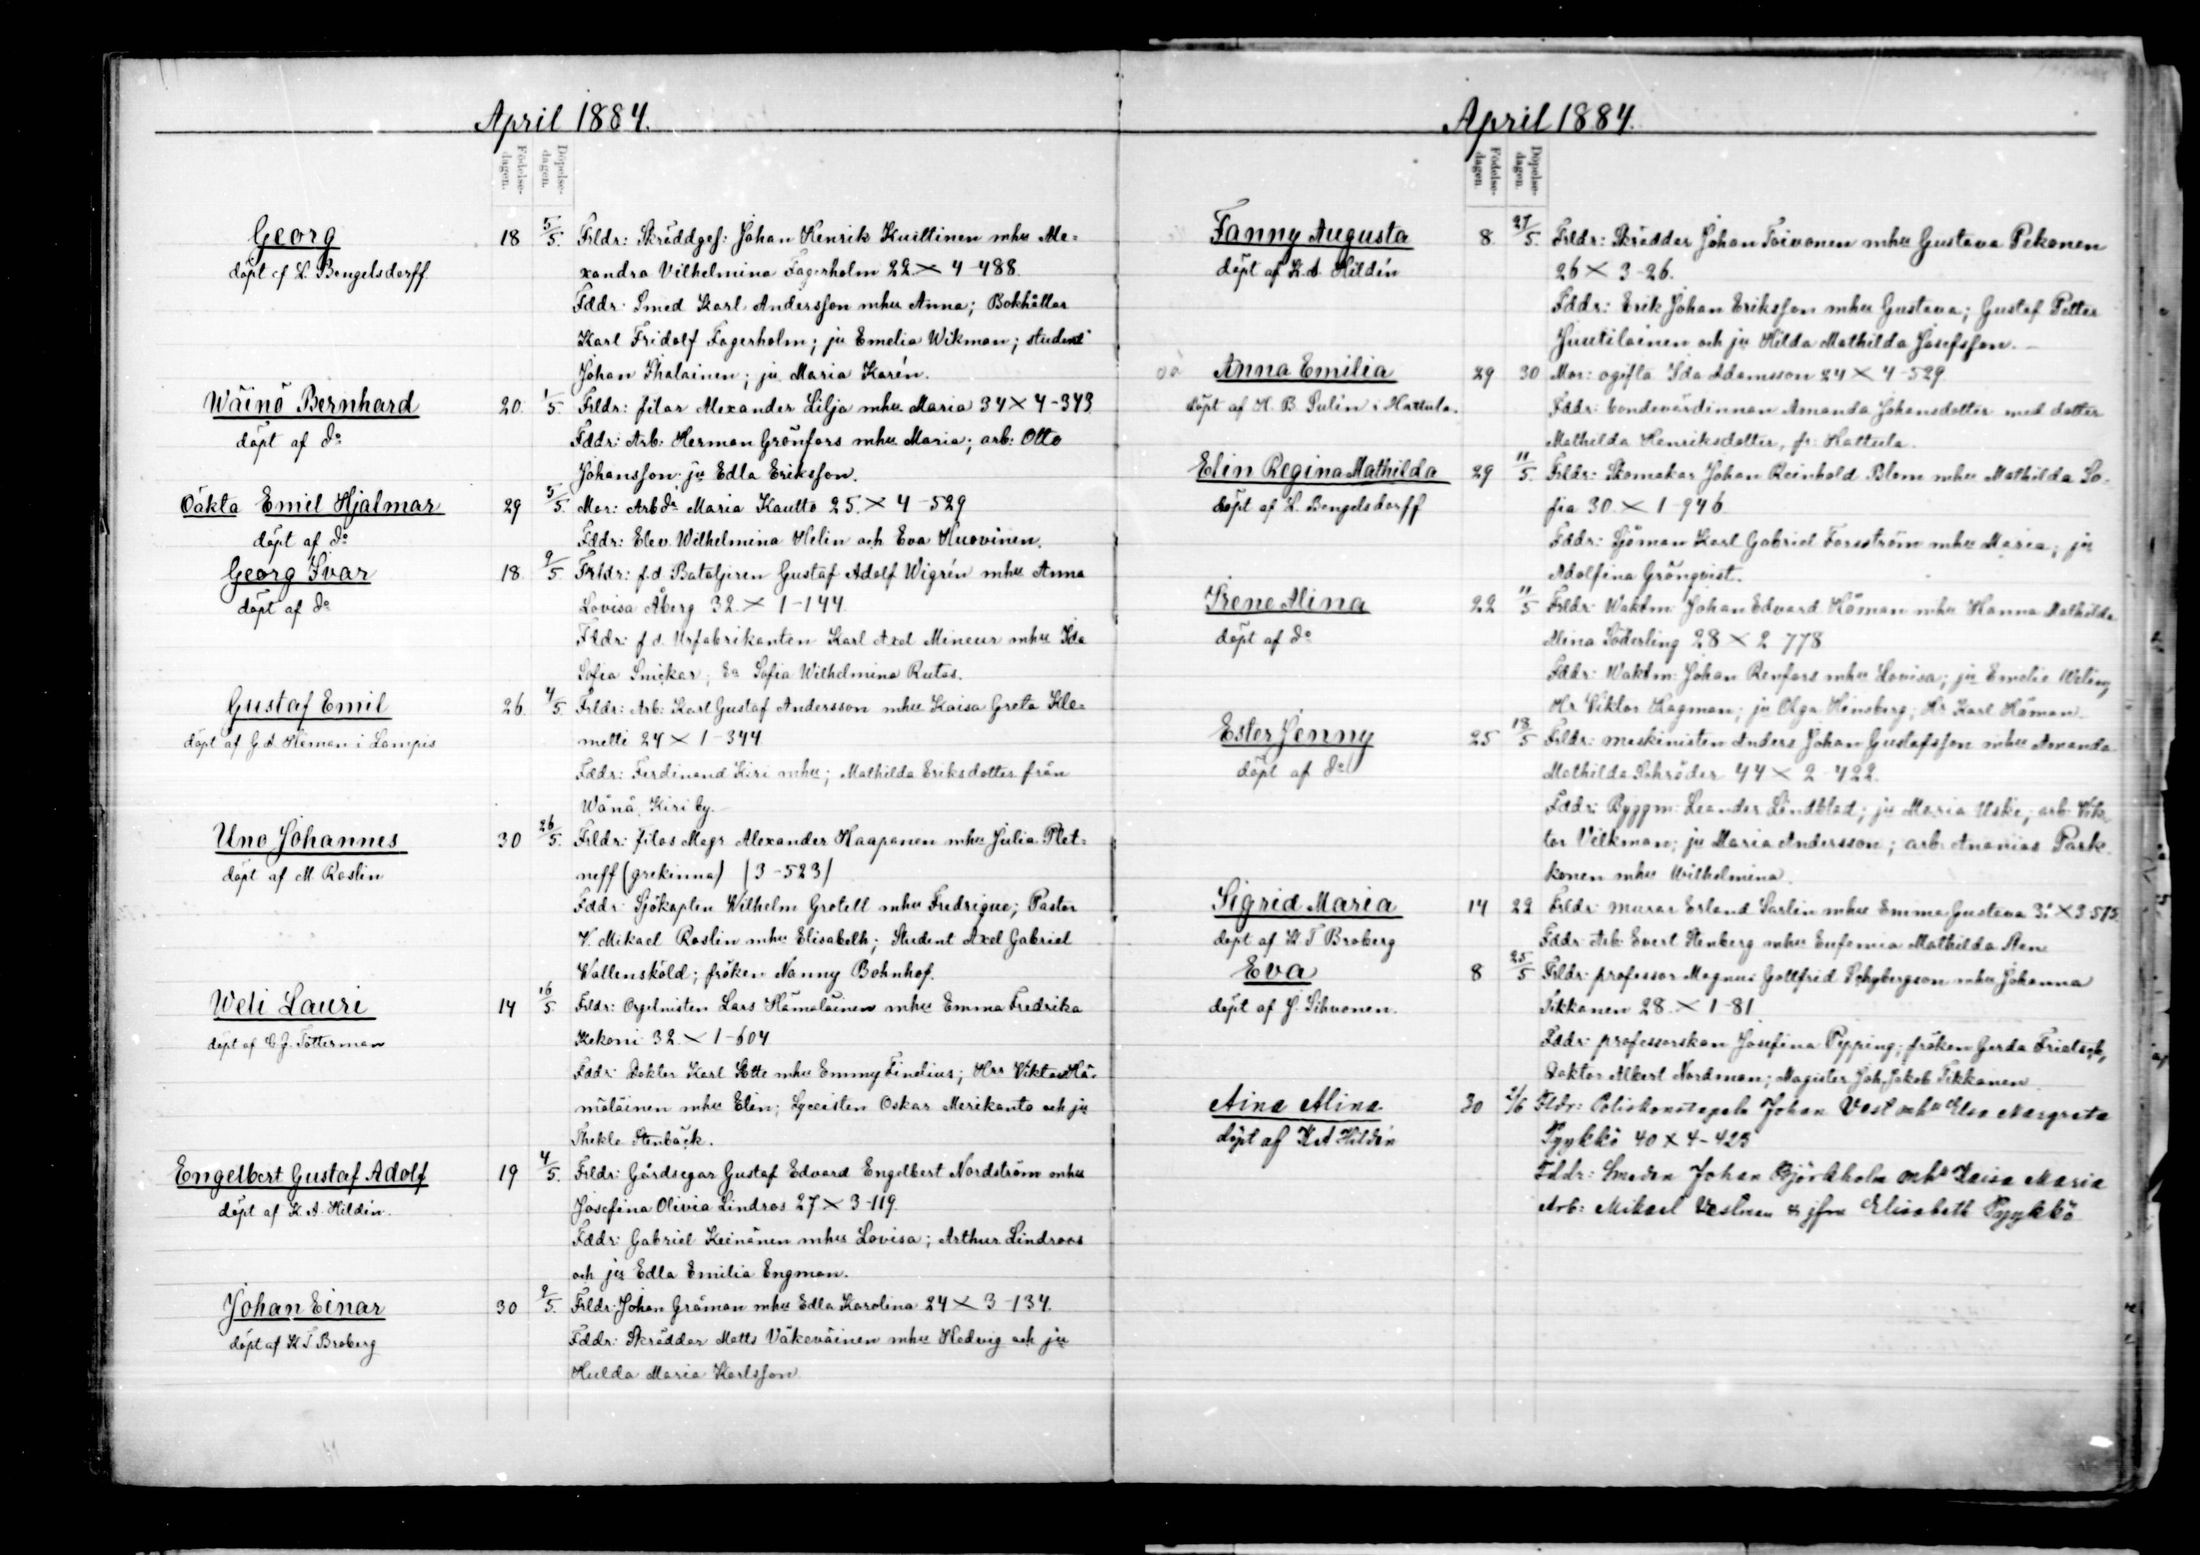 April 1884.
Födelse-
dagen.
Döpelse-
dagen.
Georg 18 5/5. Frldr: Skräddges: Johan Henrik Kuittinen mhu Ale=
döpt af L. Bengelsdorff xandra Vilhelmina Fagerholm 22 × 4-488.
Fddr: Smed Karl Andersson mhu Anna; Bokhållar
Karl Fridolf Fagerholm; ju Emelia Wikman; student
Johan Ihalainen; ju Maria Karén.
Wäinö Bernhard 20. 1/5. Frldr: filar Alexander Lilja mhu Maria 34 × 4-343
döpt af do Fddr: Arb: Herman Grönfors mhu Maria; arb: Otto
Johansson ju Edla Eriksson.
Oäkta Emil Hjalmar 29 5/5. Mor: Arbda Maria Kautto 25. × 4-529
döpt af do Fddr: Elev. Wilhelmina Helin och Eva Huovinen.
Georg Ivar 18. 9/5 Frldr: f.d. Bataljiren Gustaf Adolf Wigrén mhu Anna
döpt af do Lovisa Åberg 32. × 1-144.
Fddr: f.d. Urfabrikanten Karl Axel Mineur mhu Ida
Sofia Snickar; Ea Sofia Wilhelmina Rutas.
Gustaf Emil 26. 4/5. Frldr: Arb: Karl Gustaf Andersson mhu Kaisa Greta Kle=
döpt af G.A. Heman i Lampis metti 24 × 1-344
Fddr: Ferdinand Kiri mhu; Mathilda Eriksdotter från
Wånå, Kiri by.
Uno Johannes 30 26/5. Frldr: filos Magr Alexander Haapanen mhu Julia Plet=
döpt af M. Roslin neff (grekinna) /3-523/
Fddr: Sjökapten Wilhelm Grotell mhu Fredrique; Pastor
V. Mikael Roslin mhu Elisabeth; Student Axel Gabriel
Wallensköld; fröken Nanny Bohnhof.
Weli Lauri 14 16/5. Frldr: Orgelnisten Lars Hämäläinen mhu Emma Fredrika
döpt af C.J. Tötterman Kekoni 32. × 1-604
Fddr: Doktor Karl Sotte mhu Emmy Finelius; Hrr Viktor Hä=
mäläinen mhu Elin; Lyceisten Oskar Merikanto och ju
Thekla Stenbäck.
Engelbert Gustaf Adolf 19 4/5. Frldr: Gårdsegar Gustaf Edvard Engelbert Nordström mhu
döpt af K.A. Hildén. Josefina Olivia Lindros 27 × 3-119.
Fddr: Gabriel Keinänen mhu Lovisa; Arthur Lindroos
och ju Edla Emilia Engman.
Johan Einar 30 9/5. Frldr: Johan Gråman mhu Edla Karolina 24 × 3-134.
döpt af K T Broberg Fddr: Skräddar Matts Väkeväinen mhu Hedvig och ju
Hulda Maria Karlsson
April 1884.
Födelse-
dagen.
Döpelse-
dagen.
Fanny Augusta 8 27/5. Frldr: Skräddar Johan Toivonen mhu Gustava Pekonen
döpt af K.A. Hildén 26 × 3-26.
Fddr: Erik Johan Eriksson mhu Gustava; Gustaf Petter
Juutilainen och ju Hilda Mathilda Josefsson.
oä Anna Emilia 29 30 Mor: ogifta Ida Adamsson 24 × 4-529
döpt af H. B. Sulin i Hattula. Fddr: bondevärdinnan Amanda Johansdotter med dotter
Mathilda Henriksdotter, fr: Hattula.
Elin Regina Mathilda 29 11/5. Frldr: Skomakar Johan Reinhold Blom mhu Mathilda So-
döpt af L. Bengelsdorff fia 30. × 1-946
Fddr: Sjöman Karl Gabriel Forsström mhu Maria; ju
Adolfina Grönqvist.
Irene Alina 22 11/5 Frldr: Waktm Johan Edvard Häman mhu Hanna Mathilda
döpt af do Mina Söderling 28 × 2-778
Fddr: Waktm: Johan Renfors mhu Lovisa; ju Emelie Weling
Hr Viktor Hagman; ju Olga Hensberg; Hr Karl Häman
Ester Jenny 25 18/5 Frldr: maskinisten Anders Johan Gustafsson mhu Amanda
döpt af do Mathilda Schröder 44 × 2-422.
Fddr: Byggm: Leander Lindblad; ju Maria Uske; arb: Vik-
tor Vilkman; ju Maria Andersson; arb: Ananias Park-
konen mhu Wilhelmina.
Sigrid Maria 14 22 Frldr: murar Erland Sarlin mhu Emma Gustava 31 × 3 575
döpt af K T Broberg Fddr: Arb: Evert Stenberg mhu Eufemia Mathilda Sten
Eva 8 25/5 Frldr: professor Magnus Gottfrid Schybergson mhu Johanna
döpt af J. Sihvonen. Tikkanen 28. × 1-81
Fddr: professorskan Josefina Pipping; fröken Gerda
Doktor Albert Nordman; Magister Joh. Jakob Tikkanen
Aina Alina 30 2/6 Fldr: Poliskonstapeln Johan Vest mhu Elsa Margreta
döpt af K A Hildén Pyykkö 40 × 4-423
Fddr: Smeden Johan Björkholm mhu Kaisa Maria
Arb: Mikael & jfru Elisabeth Pyykkö